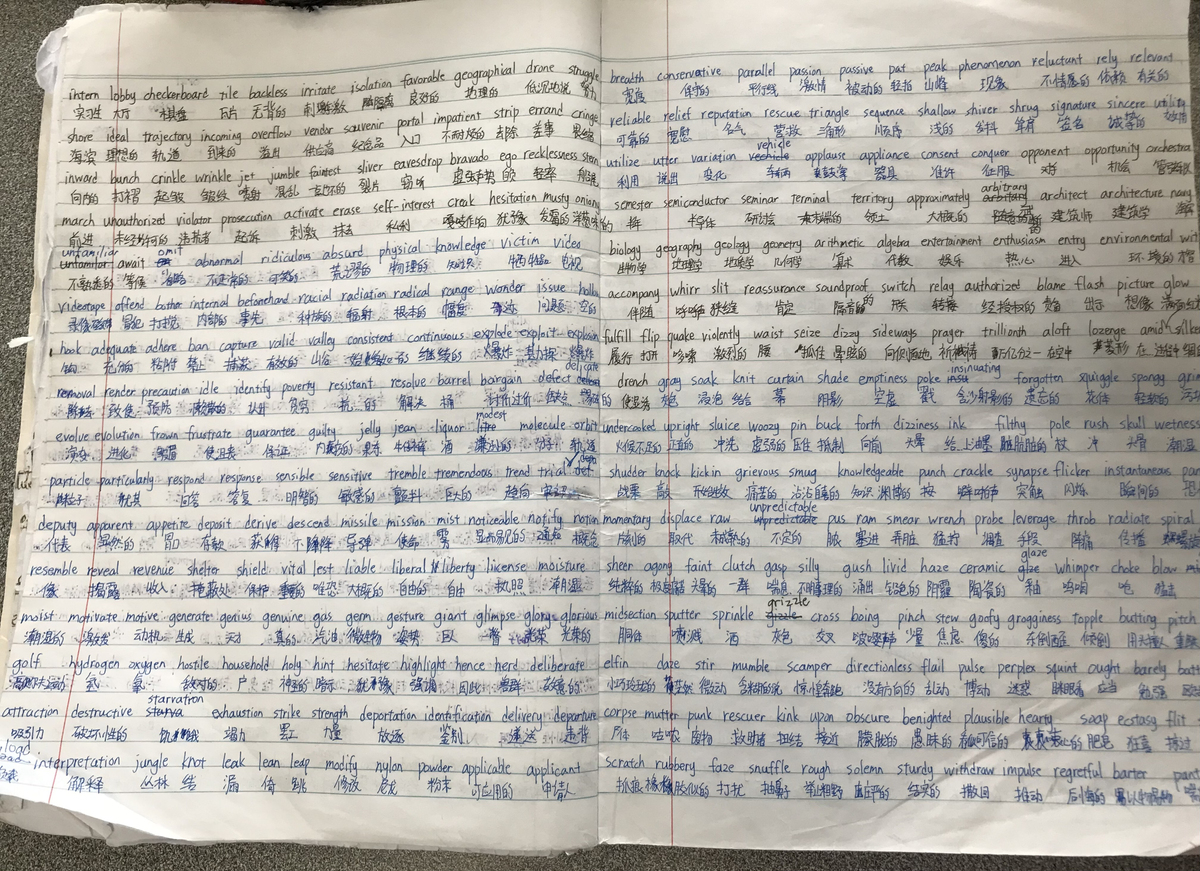 intern lobby checkerboard tile backless irritate isolation favorable geographical drone struggle
实习生 大厅 棋盘 瓦片 无背的 刺激 隔离 良好的 地理的 低沉地说
shore ideal trajectory incoming overflow vendor souvenir portal impatient strip errand cringe
海滨 理想的 轨道 到来的 溢出 供应商 纪念品 入口 不耐烦的 去除 差事 畏缩
inward bunch crinkle wrinkle jet jumble faintest sliver eavesdrop bravado ego recklessness stern
向内的 打褶 起皱 皱纹 喷射 混乱 裂片 窃听 虚张声势 自我 轻率
march unauthorized violator prosecution activate erase self-interest croak hesitation musty
前进 未经许可的 违规者 起诉 刺激 抹去 私利 犹豫 发霉的
unfamiliar omit
await abnormal ridiculous absurd physical knowledge victim video
不熟悉的 等候 省略 不正常的 可笑的 荒谬的 物理的 知识 牺牲品 电视
videotape offend bother internal beforehand racial radiation radical range wonder issue
冒犯 打扰 内部的 事先 种族的 辐射 根本的 幅度 问题 空的
hook adequate adhere ban capture valid valley consistent continuous explode exploit explosion
钩 充分的 粘附 禁止 捕获 有效的 山谷 继续的 爆炸
delicate
removal render precaution idle identify poverty resistant resolve barrel bargain defect
致使 预防 认出 贫穷 抵抗的 解决 桶 讨价还价 缺点
modest
evolve evolution frown frustrate guarantee guilty jelly jean liquor molecule orbit
演变 进化 皱眉 使沮丧 保证 内疚的 果冻 牛仔裤 酒 谦逊的 分子 轨道
particle particularly respond response sensible sensitive tremble tremendous trend trial
粒子 尤其 回答 答复 明智的 敏感的 颤抖 巨大的 趋向 审讯
deputy apparent appetite deposit derive descend missile mission mist noticeable notify notion
代表 显然的 胃口 存款 获得 下降 导弹 使命 雾 显而易见的 通知 概念
resemble reveal revenue shelter shield vital lest liable liberal liberty license moisture
像 揭露 收入 掩蔽处 保护 重要的 唯恐 大概的 自由的 自由 执照 潮湿
moist motivate motive generate genius genuine gas germ gesture giant glimpse glory glorious
潮湿的 激发 动机 生成 天才 真的 汽油 微生物 姿势 巨人 一瞥 光荣的
golf hydrogen oxygen hostile household holy hint hesitate highlight hence herd deliberate
高尔夫运动 氢 氧 敌对的 户 神圣的 暗示 犹豫 强调 因此 兽群 故意的
starvation
attraction destructive exhaustion strike strength deportation identification delivery departure
吸引力 破坏性的 饥饿 竭力 罢工 力量 放逐 鉴别 递送
interpretation jungle knot leak lean leap modify nylon powder applicable applicant
解释 丛林 结 漏 倚 跳 修改 尼龙 粉末 可应用的 申请人
breadth conservative parallel passion passive pat peak phenomenon reluctant rely relevant
宽度 保守的 平行线 激情 被动的 轻拍 山峰 现象 不情愿的 依赖 有关的
reliable relief reputation rescue triangle sequence shallow shiver shrug signature sincere utility
可靠的 宽慰 名气 营救 三角形 顺序 浅的 发抖 耸肩 签名 诚挚的 效用
vehicle
utilize utter variation applause appliance consent conquer opponent opportunity orchestra
利用 说出 变化 车辆 鼓掌 器具 准许 征服 对手 机会 管弦乐队
arbitrary
semester semiconductor seminar terminal territory approximately architect architecture
半年 半导体 研讨会 领土 大概的 建筑师 建筑学
biology geography geology geometry arithmetic algebra entertainment enthusiasm entry environmental
生物学 地理学 地质学 几何学 算术 代数 娱乐 热心 进入 环境的
accompany whirr slit reassurance soundproof switch relay authorized blame flash picture glow
伴随 呼呼声 狭缝 肯定 隔音的 转换 经授权的 责备 出示 想像
fulfill flip quake violently waist seize dizzy sideways prayer trillionth aloft lozenge amid
履行 打开 哆嗦 激烈的 腰 抓住 晕眩的 向侧面地 祈祷 万亿分之一 在空中 菱形
insinuating
drench gray soak knit curtain shade emptiness poke forgotten squiggle spongy
使湿透 灰色 浸泡 编结 幕 阴影 空虚 戳 含沙射影的 遗忘的 花体 轻软的
undercooked upright sluice woozy pin buck forth dizziness ink filthy pole rush skull wetness
火候不足的 正直的 冲洗 虚弱的 压住 抵制 向前 头晕 给…上油墨 肮脏的 杖 冲 头骨 潮湿
shudder knock kickin grievous smug knowledgeable punch crackle synapse flicker instantaneous
战栗 敲 开始生效 痛苦的 沾沾自喜的 知识渊博的 按 噼啪声 突触 闪烁 瞬间的
unpredictable
momentary displace raw pus ram smear wrench probe leverage throb radiate spiral
瞬间的 取代 未成熟的 不定的 脓 塞进 弄脏 猛拧 调查 手段 阵痛 传播
glaze
sheer agony faint clutch gasp silly gush livid haze ceramic whimper choke blow
纯粹的 极度痛苦 头晕的 一群 喘息 不明事理的 涌出 铅色的 阴霾 陶瓷的 釉 呜咽 呛
grizzle
midsection sputter sprinkle cross boing pinch stew goofy grogginess topple butting pitch
胴体 喷溅 洒 灰色 交叉 啵嘤声 少量 焦虑 傻的 东倒西歪 倾倒
elfin daze stir mumble scamper directionless flail pulse perplex squint ought barely
小巧玲珑的 茫然 微动 含糊的说 惊惶奔跑 没有方向的 乱动 搏动 迷惑 眯眼看 应当 勉强
corpse mutter punk rescuer kink upon obscure benighted plausible hearty soap ecstasy flit
尸体 咕哝 废物 救助者 扭结 接近 朦胧的 愚昧的 看似可信的 肥皂 狂喜 掠过
scratch rubbery faze snuffle rough solemn sturdy withdraw impulse regretful barter
抓痕 橡胶似的 打扰 抽鼻子 粗野 庄严的 结实的 撤回 推动 后悔的